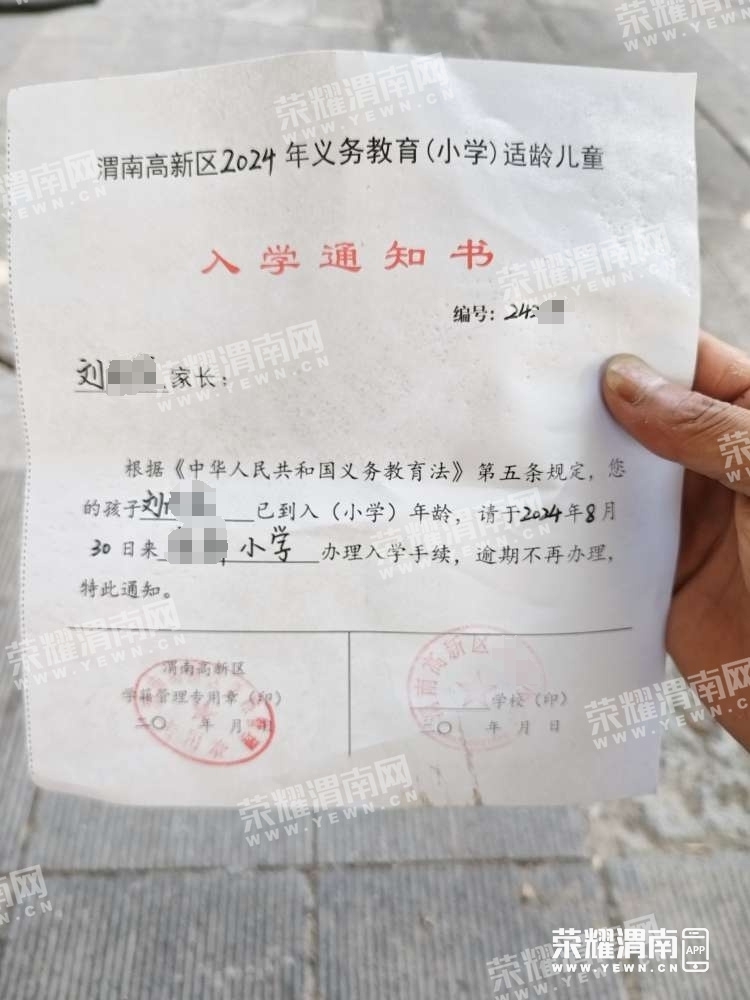 渭南高新区2024年义务教育(小学)适龄儿童
入学通知书
编号:242
刘 家长:
根据《中华人民共和国义务教育法》第五条规定,您
的孩子刘 已到入(小学)年龄,请于2024年8月
30日来 小学 办理入学手续,逾期不再办理,
特此通知。
渭南高新区
学籍管理专用章(印)
二〇 年 月 日
渭南高新区
学校(印)
〇 年 月 日
荣耀渭南网
WWW.YEWN.CN
荣耀渭南 APP
WWW.YEWN.CN